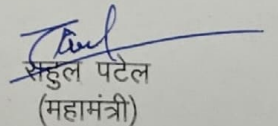 राहुल पटेल
(महामंत्री)